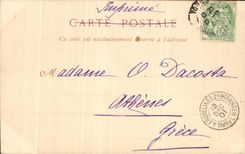 Imprimé
CARTE POSTALE
CE CÔTÉ EST EXCLUSIVEMENT RÉSERVÉ A L'ADRESSE
Madame O. Dacosta
Athènes
Grèce